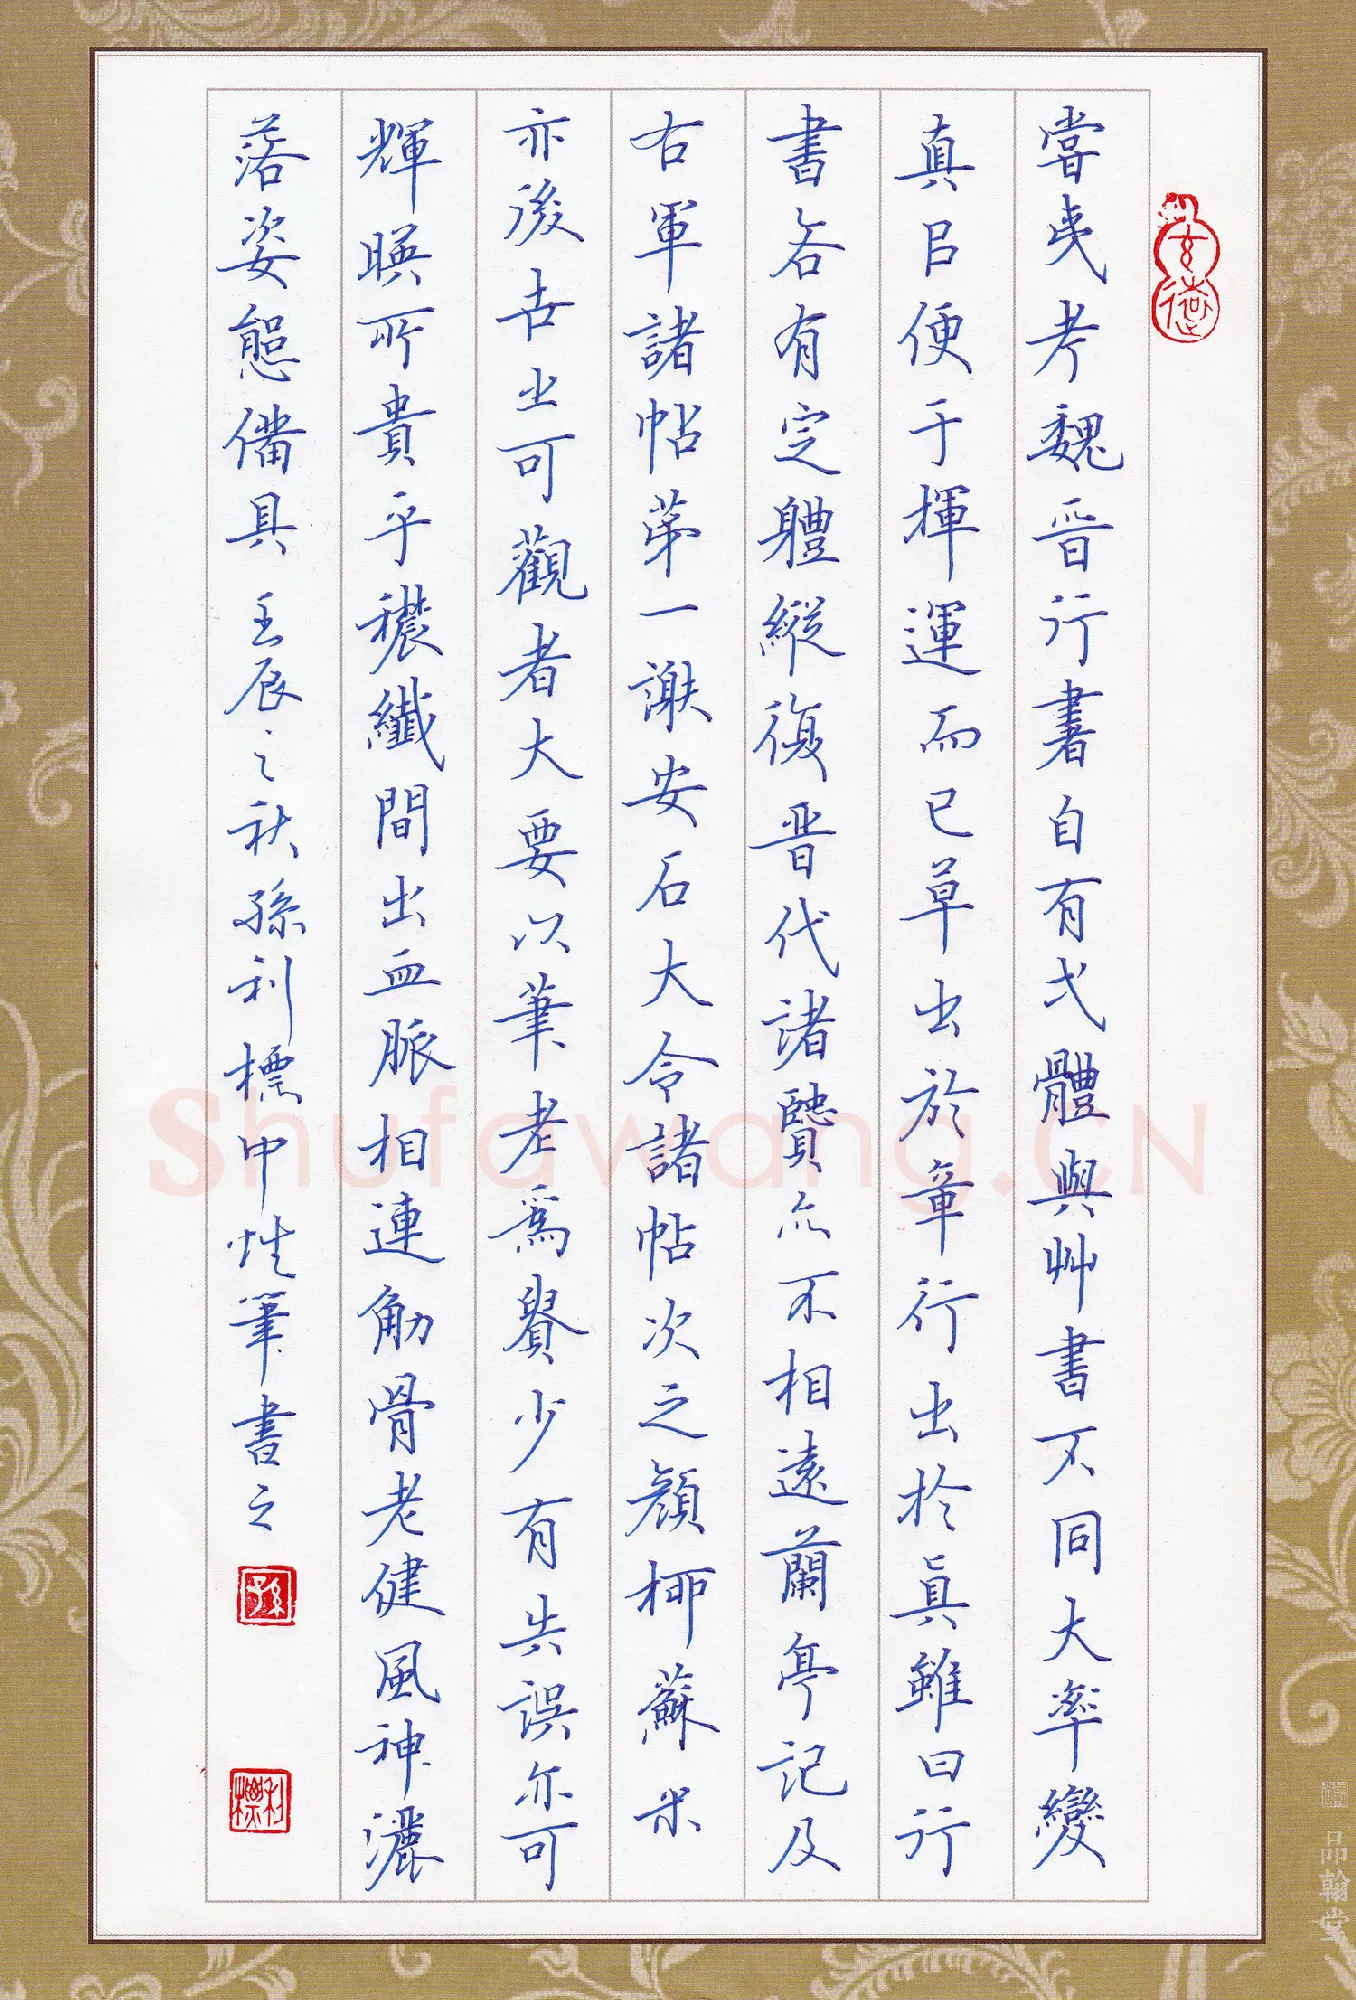 嘗夷考魏晉行書自有弍體與艸書不同大率變
真㠯便于揮運而已草出於章行出於真雖曰行
書各有定體縱復晉代諸賢亦不相遠蘭亭記及
右軍諸帖第一謝安石大令諸帖次之顏柳蘇米
亦後世之可觀者大要以筆老爲貴少有失誤亦可
輝暎所貴乎穠纖間出血脈相連觔骨老健風神灑
落姿態備具 壬辰之秋孫利標中性筆書之
玄德
孫
利標
Shufawang.CN
品翰堂